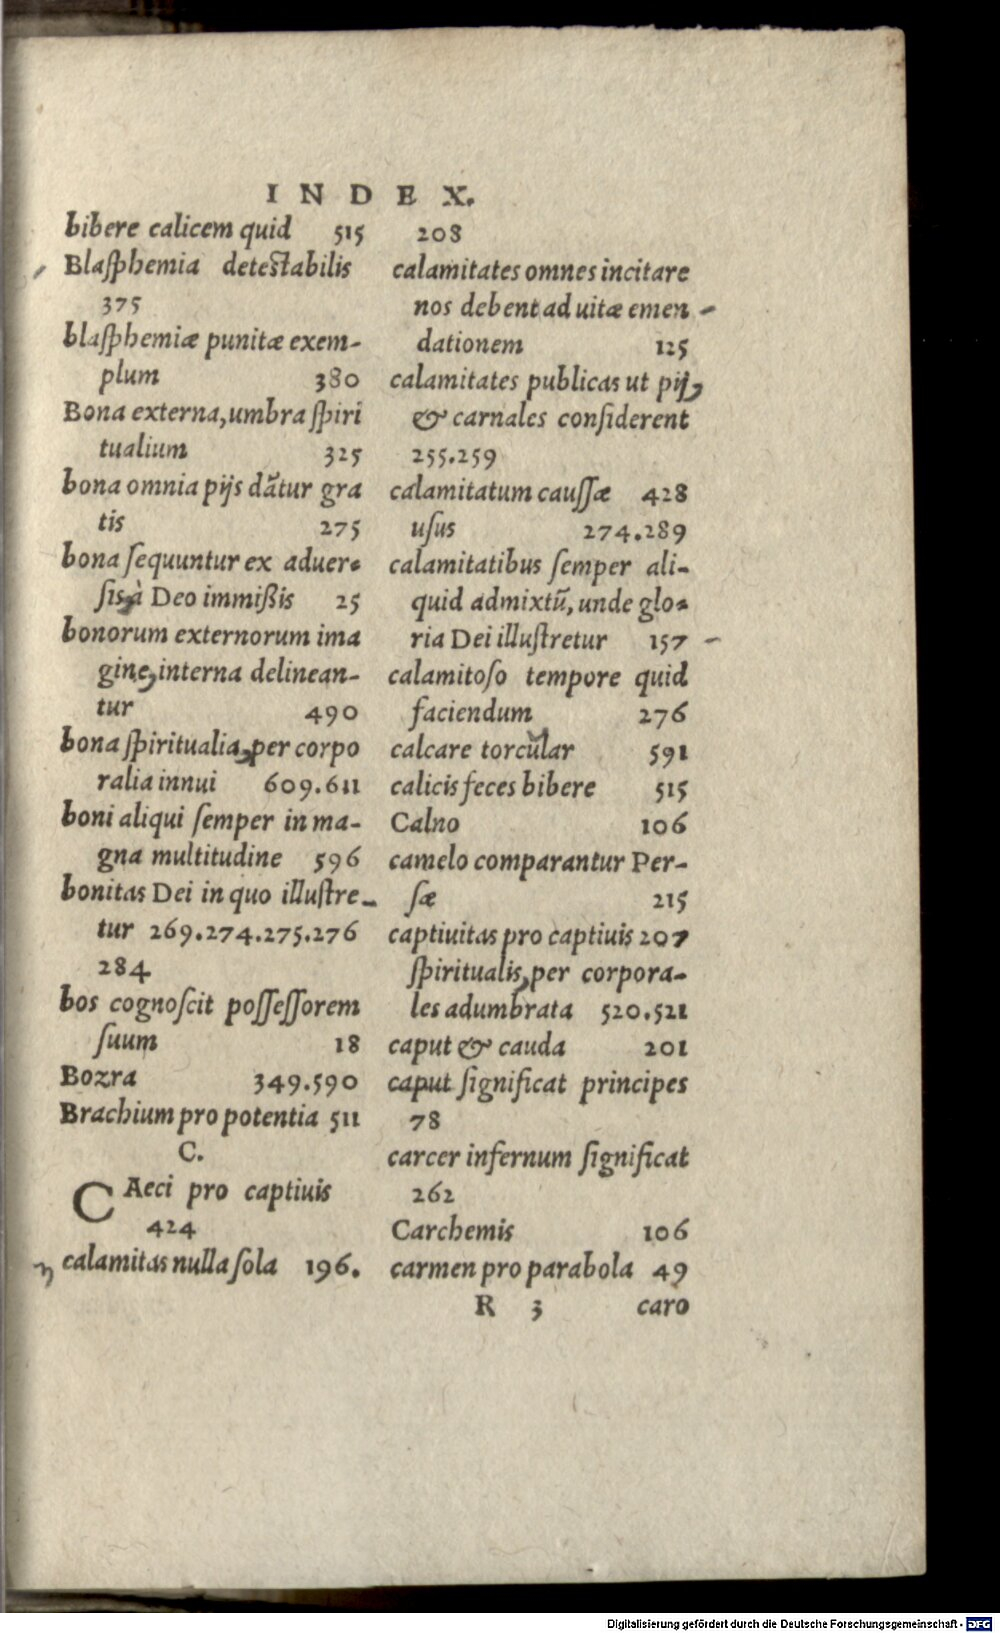 INDEX.
bibere calicem quid 515
Blaſphemia deteſtabilis
375
blaſphemiæ punitæ exem-
plum 380
Bona externa, umbra ſpiri
tualium 325
bona omnia pijs dātur gra
tis 275
bona ſequuntur ex aduer-
ſis, à Deo immißis 25
bonorum externorum ima
gine, interna delinean-
tur 490
bona ſpiritualia, per corpo
ralia innui 609.611
boni aliqui ſemper in ma-
gna multitudine 596
bonitas Dei in quo illuſtre-
tur 269.274.275.276
284
bos cognoſcit poſſeſſorem
ſuum 18
Bozra 349.590
Brachium pro potentia 511
C.
CAeci pro captiuis
424
calamitas nulla ſola 196.
208
calamitates omnes incitare
nos debent ad uitæ emen-
dationem 125
calamitates publicas ut pij,
& carnales conſiderent
255.259
calamitatum cauſſæ 428
uſus 274.289
calamitatibus ſemper ali-
quid admixtū, unde glo-
ria Dei illuſtretur 157
calamitoſo tempore quid
faciendum 276
calcare torcular 591
calicis feces bibere 515
Calno 106
camelo comparantur Per-
ſæ 215
captiuitas pro captiuis 207
ſpiritualis, per corpora-
les adumbrata 520.521
caput & cauda 201
caput ſignificat principes
78
carcer infernum ſignificat
262
Carchemis 106
carmen pro parabola 49
R 3 caro
Digitalisierung gefördert durch die Deutsche Forschungsgemeinschaft - DFG